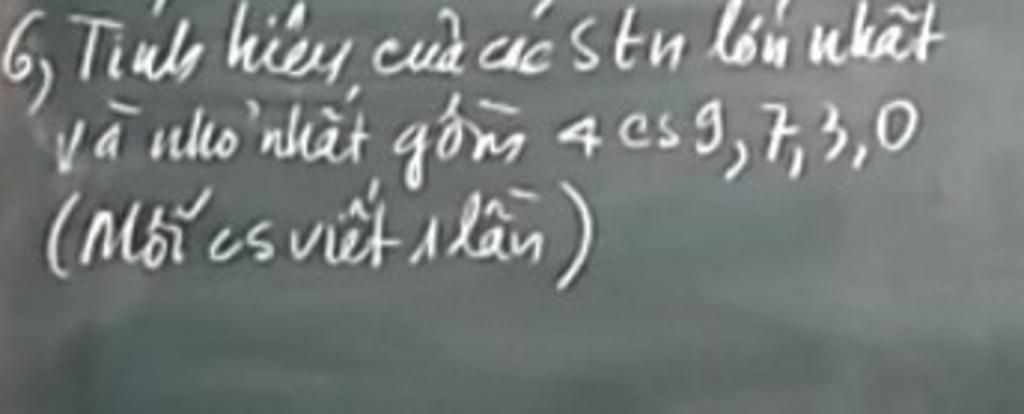 6, Tính hiệu của các stn lớn nhất
và nhỏ nhất gồm 4 cs 9, 7, 3, 0
(Mỗi cs viết 1 lần)